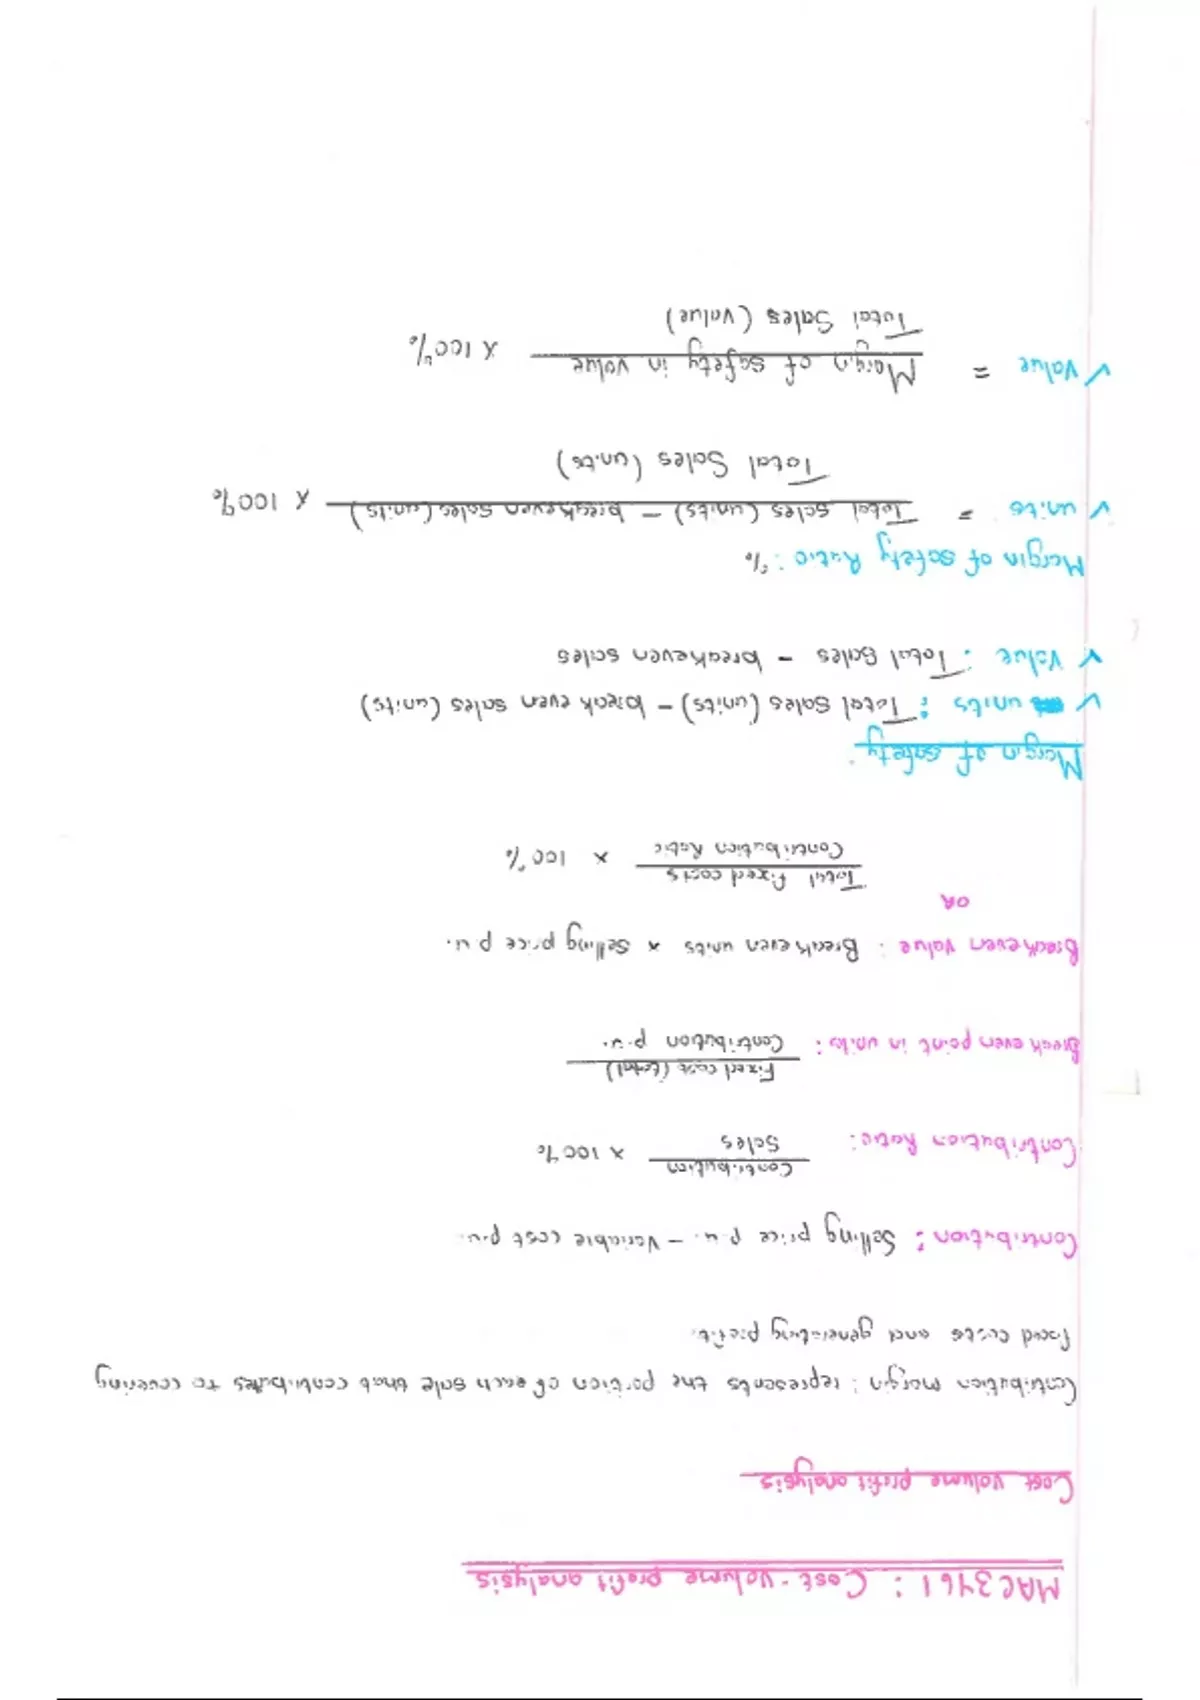 MAC3761 : Cost-volume profit analysis
Cost volume profit analysis
Contribution margin : represents the portion of each sale that contributes to covering
fixed costs and generating profit.
Contribution : Selling price p.u. - Variable cost p.u.
Contribution Ratio: Contribution
Sales × 100%
Break even point in units : Fixed cost (total)
Contribution p.u.
Breakeven value : Breakeven units × Selling price p.u.
OR
Total fixed costs
Contribution Ratio × 100%
Margin of safety:
✓ units : Total sales (units) - break even sales (units)
✓ Value : Total sales - breakeven sales
Margin of safety Ratio : %
✓ units = Total sales (units) - breakeven sales (units)
Total Sales (units) × 100%
✓ Value = Margin of safety in value
Total Sales (value) × 100%